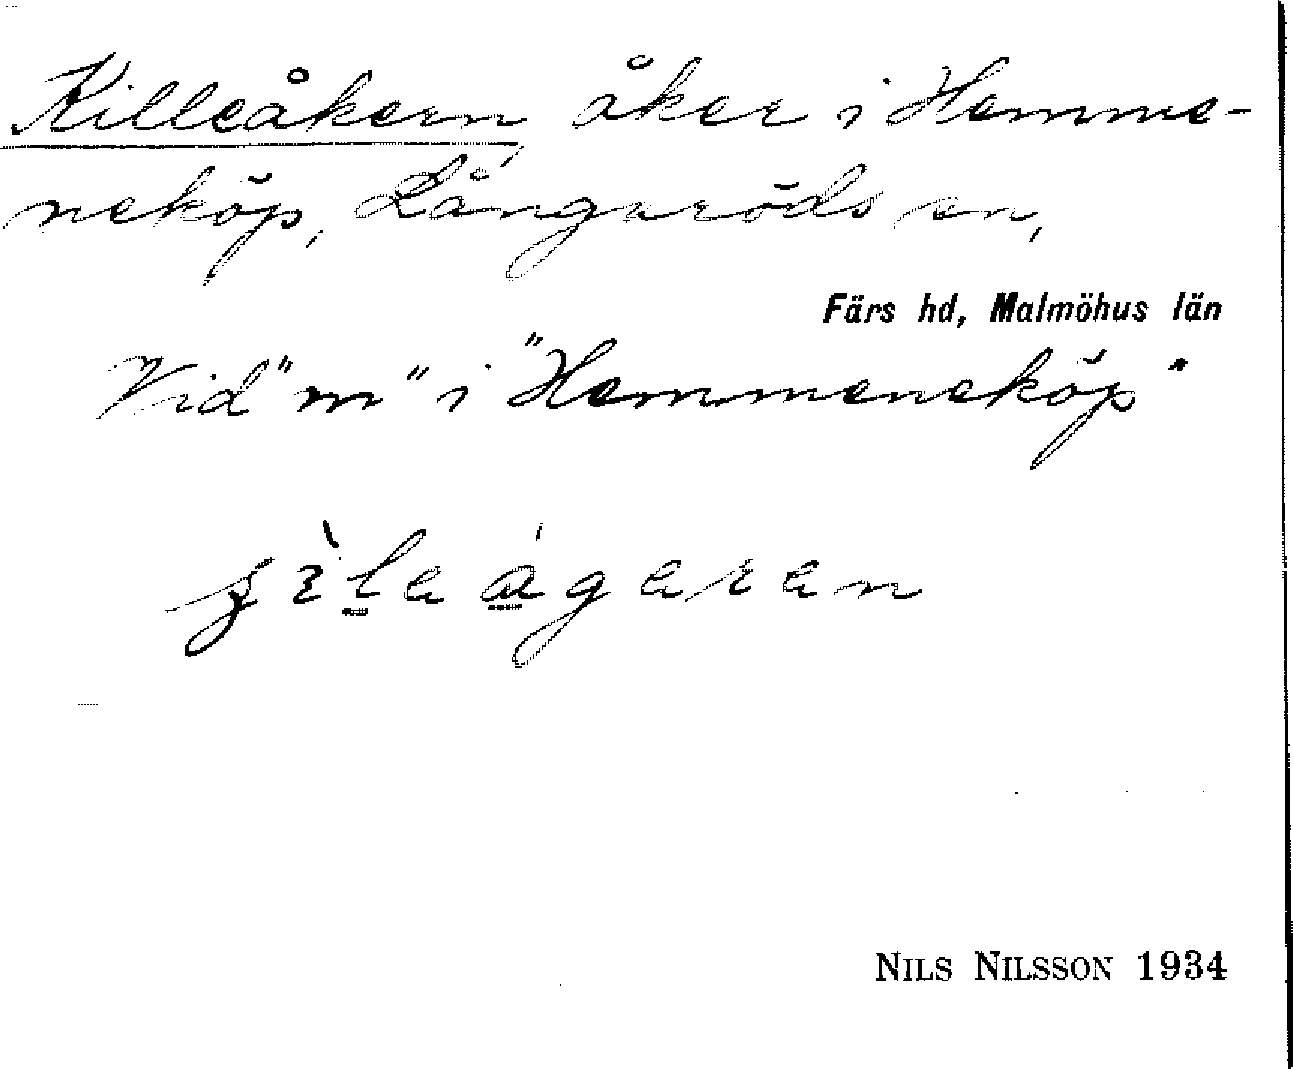 Killeåkern åker i Hemme-
neköp, Långaröds sn,
Färs hd, Malmöhus län
Vid "m" i "Hemmeneköp"
NILS NILSSON 1934